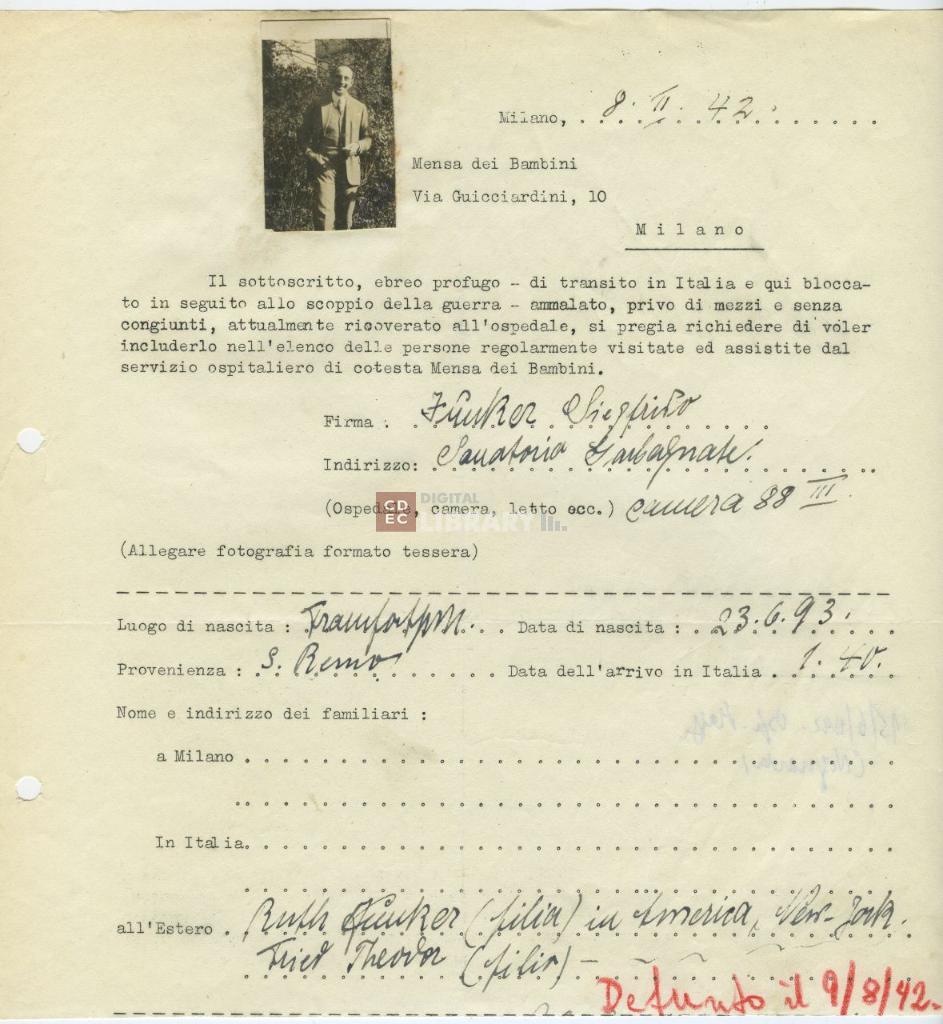 Milano, 8. II. 42.
Mensa dei Bambini
Via Guicciardini, 10
Milano
Il sottoscritto, ebreo profugo - di transito in Italia e qui blocca-
to in seguito allo scoppio della guerra - ammalato, privo di mezzi e senza
congiunti, attualmente ricoverato all'ospedale, si pregia richiedere di voler
includerlo nell'elenco delle persone regolarmente visitate ed assistite dal
servizio ospitaliero di cotesta Mensa dei Bambini.
Firma : Siegfrido
Indirizzo: Sanatorio Garbagnate.
(Ospedale, camera, letto ecc.) camera 88 III.
CDEC DIGITAL LIBRARY
(Allegare fotografia formato tessera)
Luogo di nascita : Data di nascita : 23.6.93.
Provenienza : S. Remo Data dell'arrivo in Italia 1.40.
Nome e indirizzo dei familiari :
a Milano
In Italia
all'Estero Ruth (filia) in America, New-York.
Fried Theodor (filio) -
Defunto il 9/8/42-